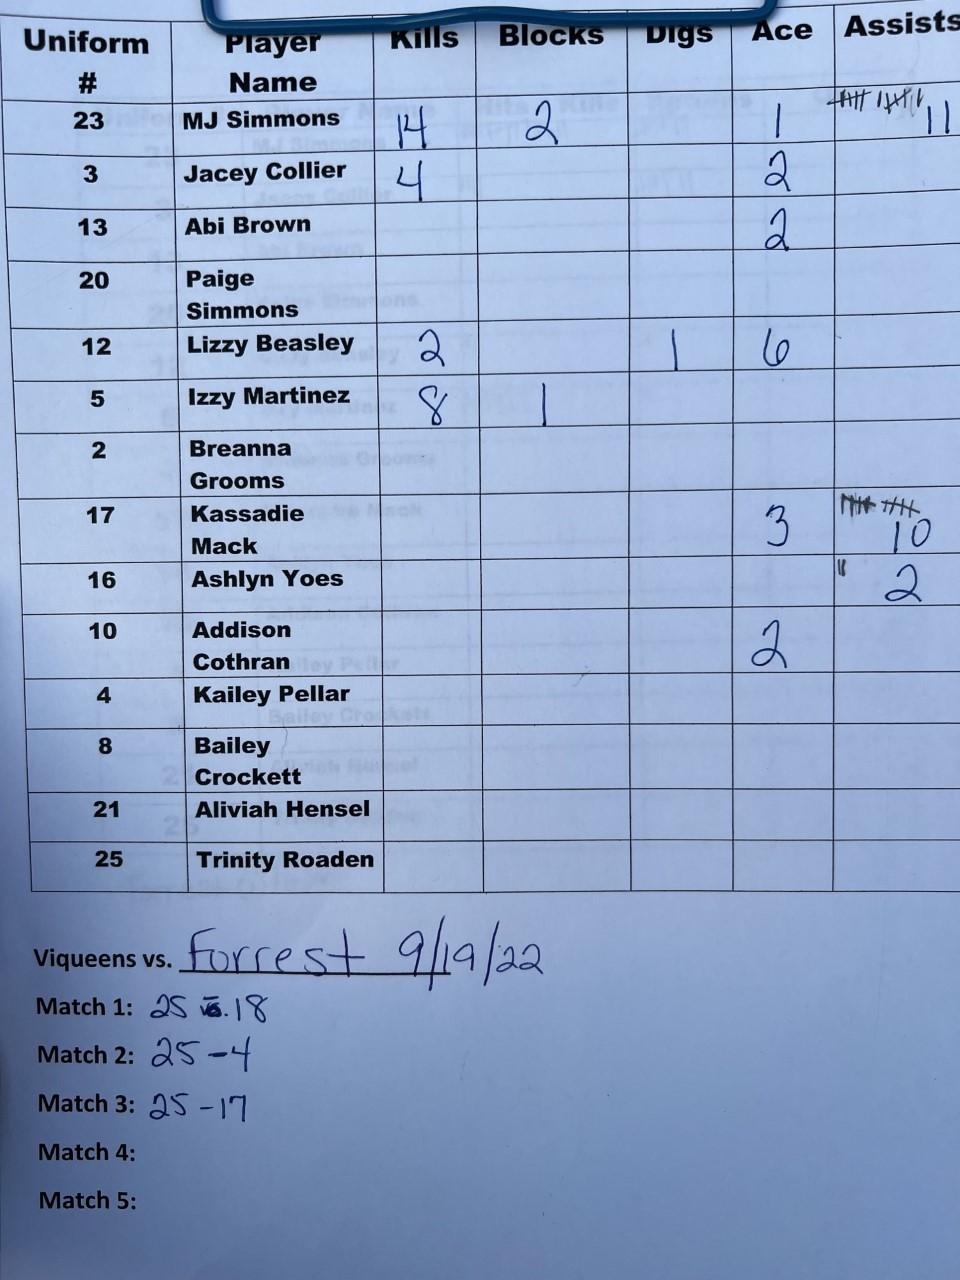 Uniform # Player Name Kills Blocks Digs Ace Assists
23 MJ Simmons 14 2 1 11
3 Jacey Collier 4 2
13 Abi Brown 2
20 Paige Simmons
12 Lizzy Beasley 2 1 6
5 Izzy Martinez 8 1
2 Breanna Grooms
17 Kassadie Mack 3 10
16 Ashlyn Yoes 2
10 Addison Cothran 2
4 Kailey Pellar
8 Bailey Crockett
21 Aliviah Hensel
25 Trinity Roaden
Viqueens vs. Forrest 9/19/22
Match 1: 25 18
Match 2: 25-4
Match 3: 25-17
Match 4:
Match 5: